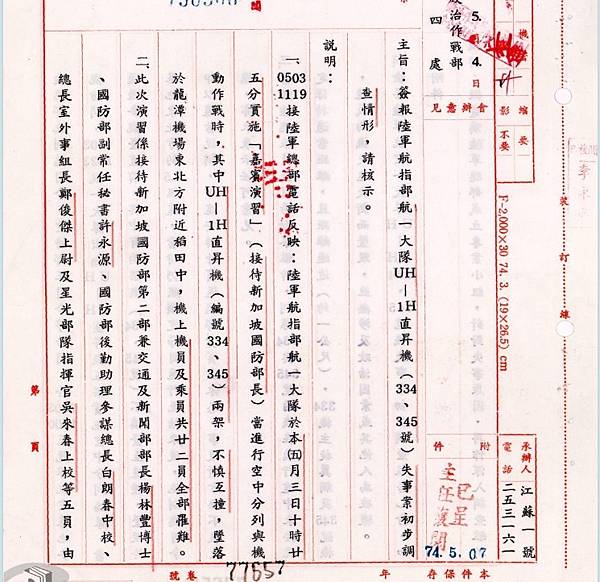 政治作戰部
四處
5.
4.
日
會辦意見
機
影
不要
縮
要
主旨：簽報陸軍航指部航一大隊UH—1H直昇機（334、345號）失事案初步調
查情形，請核示。
說明：
一、0503 1119接陸軍總部電話反映：陸軍航指部航一大隊於本(五)月三日十時廿
五分實施「嘉賓演習」（接待新加坡國防部長）當進行空中分列與機
動作戰時，其中UH—1H直昇機（編號334、345）兩架，不慎互撞，墜落
於龍潭機場東北方附近稻田中，機上機員及乘員共廿二員全部罹難。
二、此次演習係接待新加坡國防部第二部兼交通及新聞部部長楊林豐博士
、國防部副常任秘書許永源、國防部後勤助理參謀總長白朗春中校、
總長室外事組長鄭俊傑上尉及星光部隊指揮官吳來春上校等五員，由
裝訂線
F-2,000×30 74. 3. (19×26.5) cm
附件
已呈
主任復閱
74.5.07
承辦人
電話
江蘇一號
二五三一六一
第頁
77657
號卷
年
存保件本